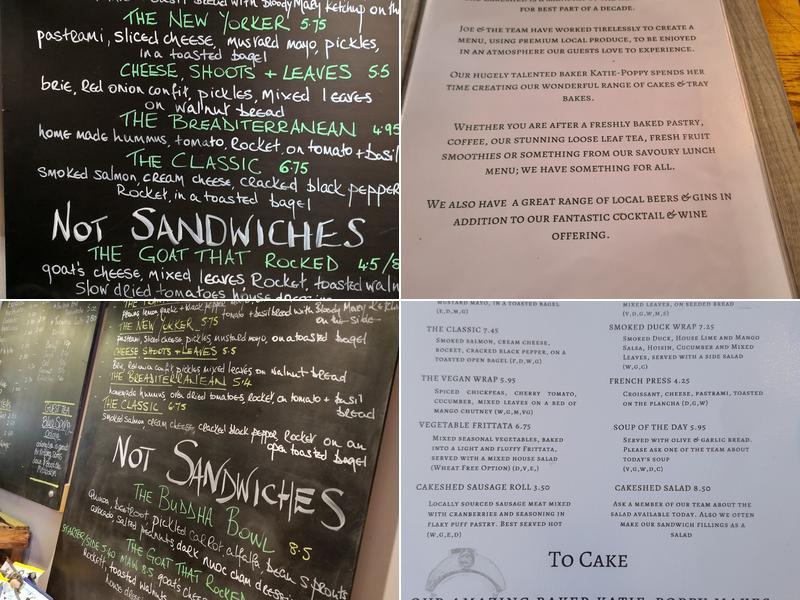 bread with Bloody Mary ketchup on th
THE NEW YORKER 5.75
pastrami, sliced cheese, mustard mayo, pickles,
in a toasted bagel
CHEESE, SHOOTS + LEAVES 5.5
brie, Red onion confit, pickles, mixed leaves
on walnut bread
THE BREADITERRANEAN 4.95
home made hummus, tomato, Rocket, on tomato + basil
THE CLASSIC 6.75
smoked salmon cream cheese, cracked black pepper
Rocket, in a toasted bagel
NOT SANDWICHES
THE GOAT THAT ROCKED 4.5/8
goat's cheese, mixed leaves Rocket, toasted waln
slow dried tomatoes house dressing
for best part of a decade.
Joe & the team have worked tirelessly to create a
menu, using premium local produce, to be enjoyed
in an atmosphere our guests love to experience.
Our hugely talented baker Katie-Poppy spends her
time creating our wonderful range of cakes & tray
bakes.
Whether you are after a freshly baked pastry,
coffee, our stunning loose leaf tea, fresh fruit
smoothies or something from our savoury lunch
menu; we have something for all.
We also have a great range of local beers & gins in
addition to our fantastic cocktail & wine
offering.
+ basil bread with Bloody Mary
on the side
THE NEW YORKER 5.75
pastrami, sliced cheese, pickles mustard mayo, on a toasted bagel
CHEESE SHOOTS + LEAVES 5.5
Brie, Red onion confit pickles mixed leaves on walnut bread
THE BREADITERRANEAN 5.4
homemade hummus, oven dried tomatoes, Rocket, on tomato + basil
bread
THE CLASSIC 6.75
Smoked salmon cream cheese, cracked black pepper Rocket on an
open toasted bagel
NOT SANDWICHES
THE BUDDHA BOWL 8.5
Quinoa beetroot pickled carrot alfalfa bean sprouts
avocado salted peanuts, dark nuoc cham dressing
STARTER/SIDE 5.40 MAIN 8.5
THE GOAT THAT ROCKED
goat's cheese
Rocket, toasted walnuts
house dressing
mustard mayo, in a toasted bagel
(E,D,M,G)
THE CLASSIC 7.45
Smoked salmon, cream cheese,
rocket, cracked black pepper, on a
toasted open bagel (F,D,W,G)
THE VEGAN WRAP 5.95
Spiced chickpeas, cherry tomato,
cucumber, mixed leaves on a bed of
mango chutney (W,G,M,VG)
VEGETABLE FRITTATA 6.75
Mixed seasonal vegetables, baked
into a light and fluffy frittata,
served with a mixed house salad
(Wheat Free Option) (D,V,E,)
CAKESHED SAUSAGE ROLL 3.50
Locally sourced sausage meat mixed
with cranberries and seasoning in
flaky puff pastry. Best served hot
(W,G,E,D)
mixed leaves, on seeded bread
(V,D,G,W,M,S)
SMOKED DUCK WRAP 7.25
Smoked Duck, House Lime and Mango
Salsa, Hoisin, Cucumber and Mixed
Leaves, served with a side salad
(W,G,C)
FRENCH PRESS 4.25
Croissant, cheese, pastrami, toasted
on the plancha (D,G,W)
SOUP OF THE DAY 5.95
Served with olive & garlic bread.
Please ask one of the team about
today's soup
(V,G,W,D,C)
CAKESHED SALAD 8.50
Ask a member of our team about the
salad available today. Also we often
make our sandwich fillings as a
salad
To Cake
Our amazing baker Katie-Poppy makes